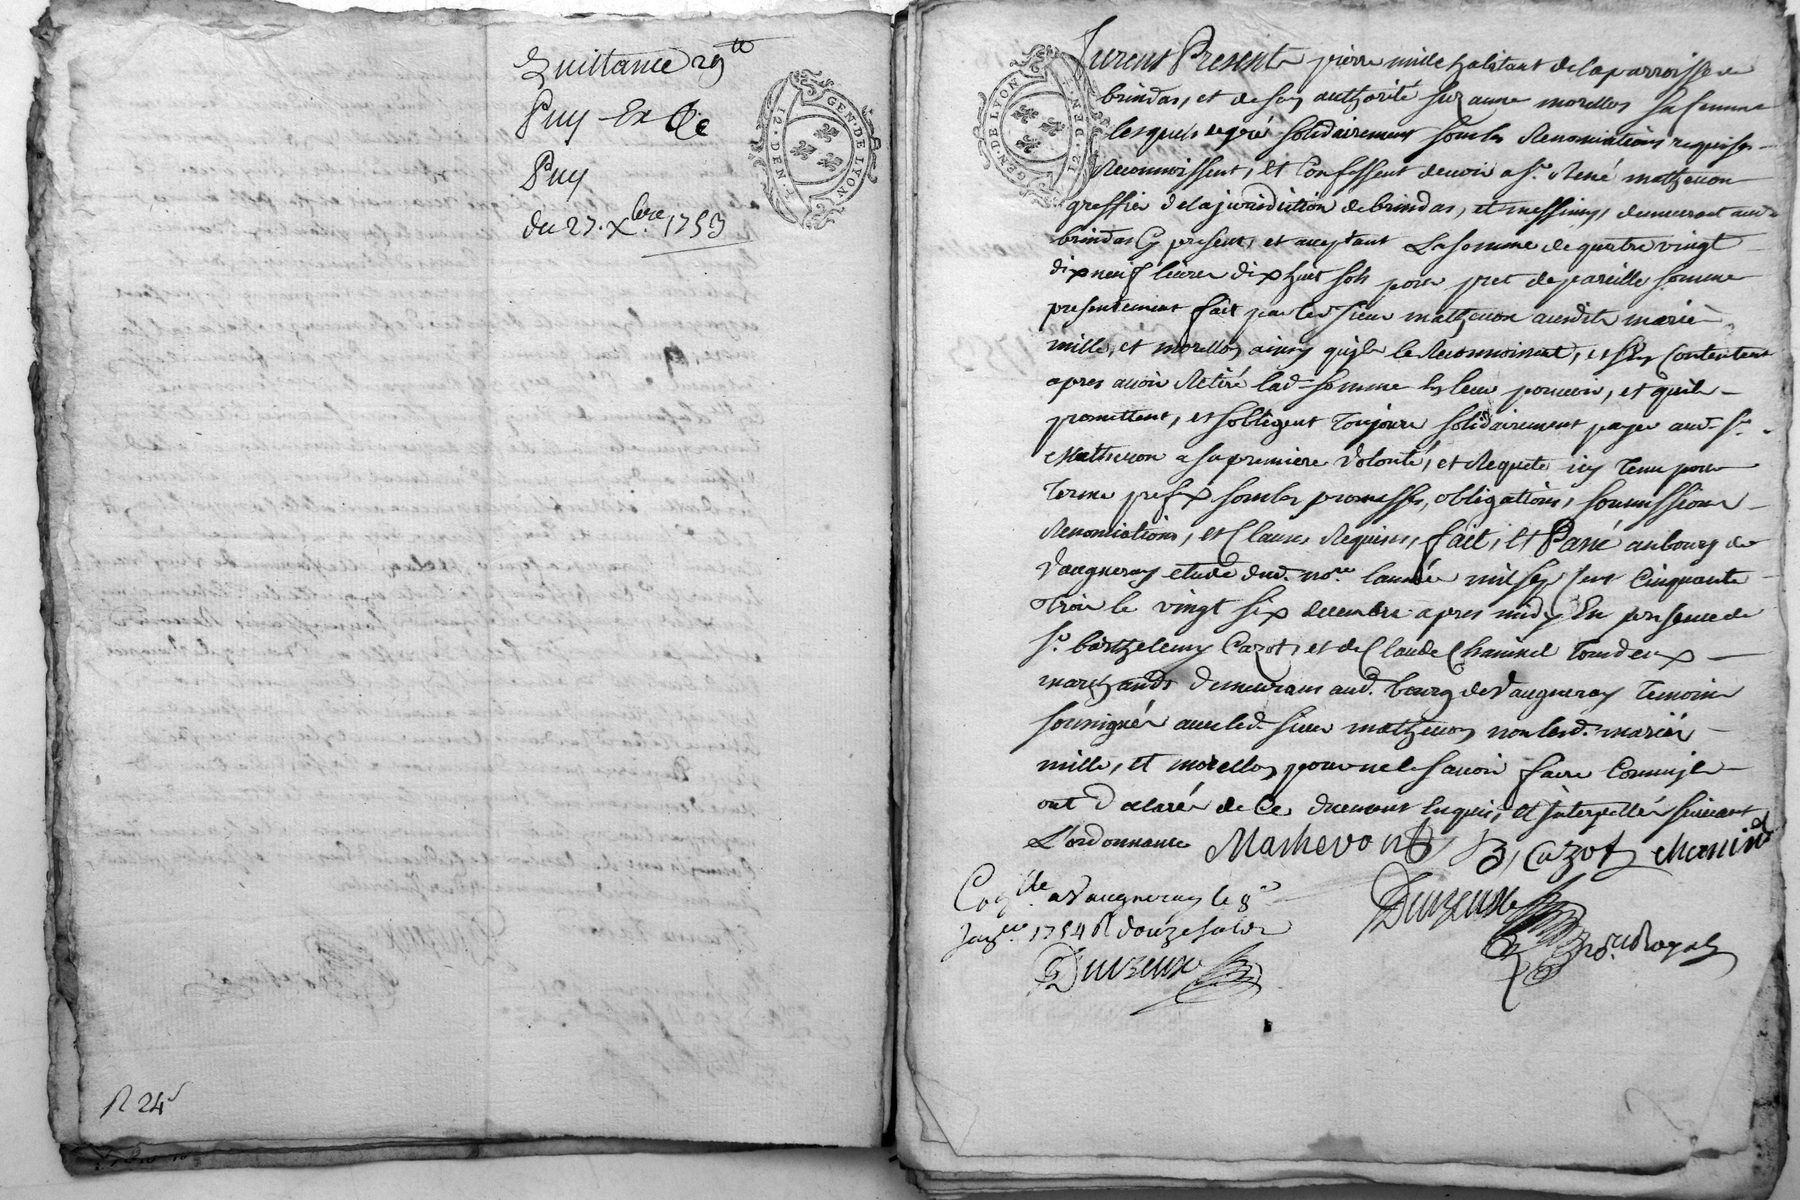 Quittance 29tt
Puy Et
Puy
du 27. Xbre. 1753
GEN. DE LYON
12. DEN.
R 24s
GEN. DE LYON
12. DEN.
furent Presents pierre mille habitant de la parroisse de
brindas, et de son authorité suzanne morellon sa femme
lesquels de gré solidairement sous les Renonciations requises
Reconnoissent, et Confessent devoir a sr. René mathevon
greffier de la jurisdiction de brindas, et messimy, demeurant aud.
brindas Cy present, et acceptant La somme de quatre vingt
dix neuf livres dix huit sols pour pret de pareille somme
presentement fait par led. sieur mathevon auxdits mariés
mille, et morellon ainsy qu'ils le Reconnoissent, et s'en Contentent
apres avoir Retiré lad. somme En leur pouvoir, et qu'ils
promettent, et s'obligent Toujours solidairement payer aud. sr.
Mathevon a sa premiere Volonté, et Requete icy Tenu pour
Terme prefix sous les promesses, obligations, soumissions
Renonciations, et Clauses Requises, fait, Et Passé au bourg de
Vaugneray etude dud. nore. l'année mil sept Cent Cinquante
Trois le vingt six decembre apres midy En presence de
sr. barthelemy Cazot, et de Claude Chaminel Tous deux
marchands demeurans aud. bourg de Vaugneray Temoins
soussignés avec led. sieur mathevon non lesd. mariés
mille, et morellon pour ne le savoir faire Comm'ils
ont declaré de Ce duement Enquis, Et Interpellés suivant
L'ordonnance Mathevon B, Cazot
Collé. a Vaugneray le 8e
janvier 1754 R douze sols
Duvzeuxe
Duvzeuxe
nore. Royal